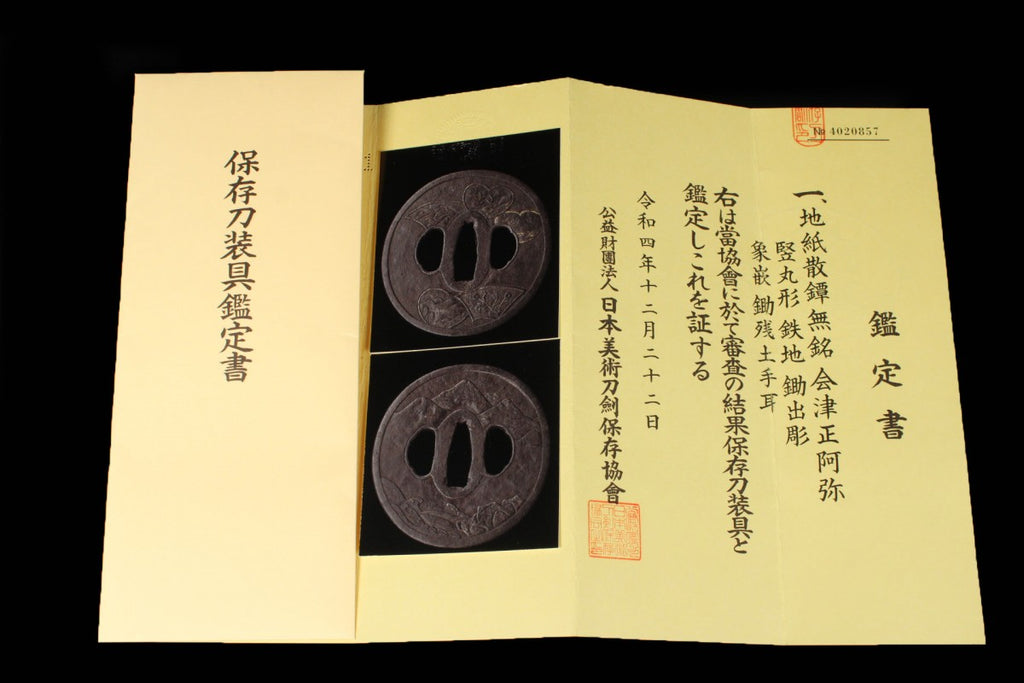 保存刀装具鑑定書
№ 4020857
鑑定書
一、地紙散鐔 無銘 会津正阿弥
竪丸形 鉄地 鋤出彫
象嵌 鋤残土手耳
右は當協會に於て審査の結果保存刀装具と
鑑定しこれを証する
令和四年十二月二十二日
公益財團法人 日本美術刀劍保存協會